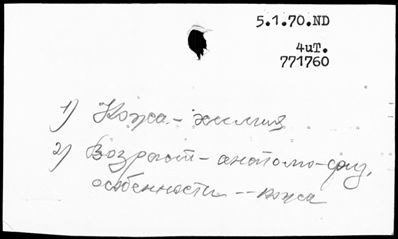 5.1.70.ND
4ит.
771760
1) Кожа - химия
2) Возраст - анатомо-физ.
особенности -- кожа